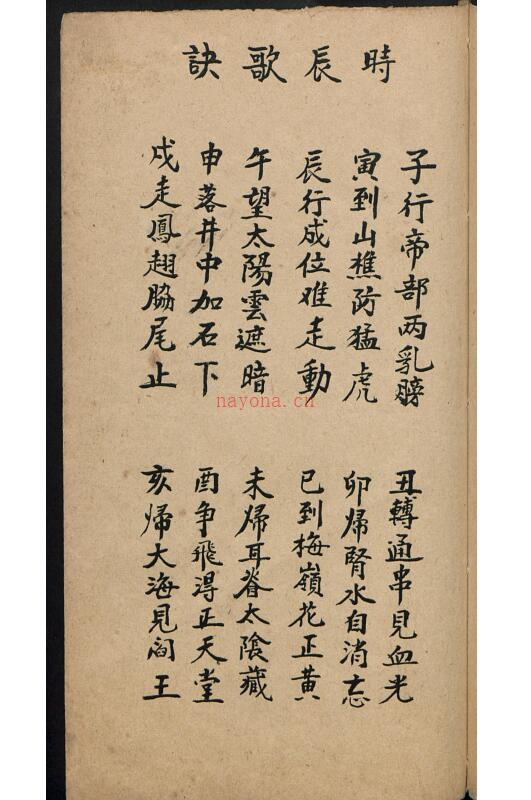 時辰歌訣
子行帝部两乳膀
丑轉通串見血光
寅到山樵防猛虎
卯帰腎水自消忘
辰行成位难走動
巳到梅嶺花正黄
午望太陽雲遮暗
未帰耳脊太隂藏
申落井中加石下
酉争飛淂正天堂
戍走鳳翅脇尾止
亥帰大海見閻王
nayona.cn